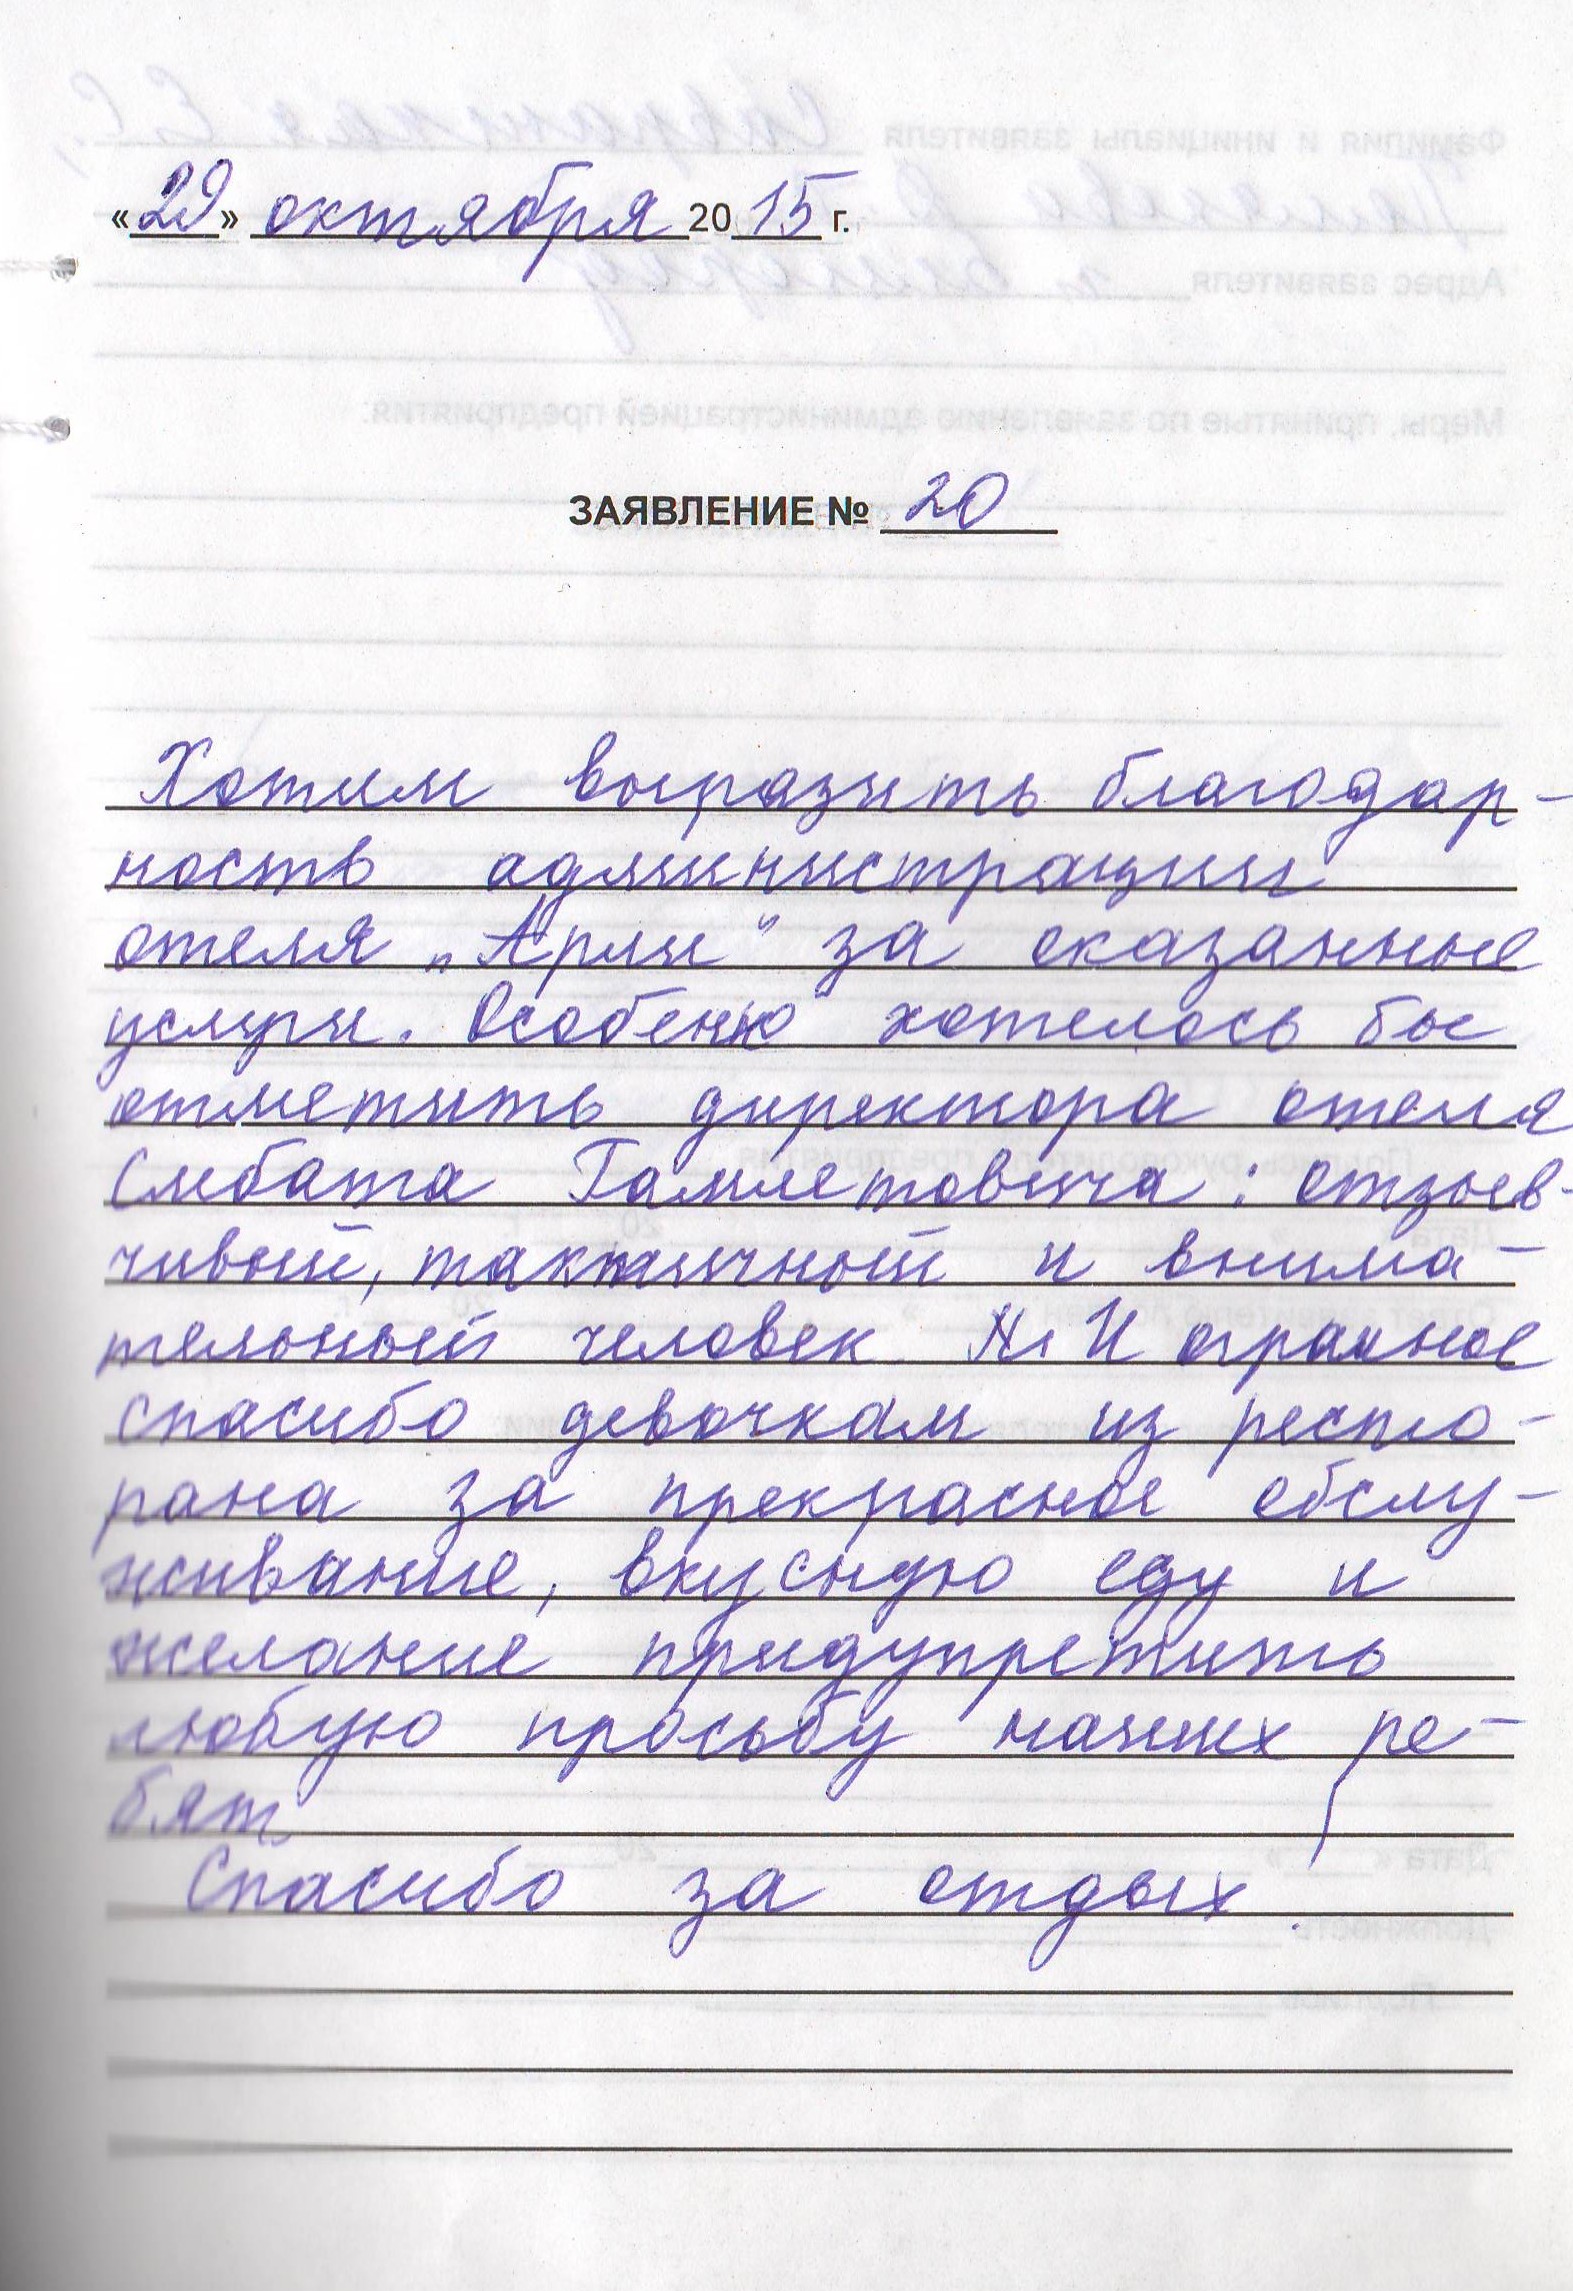 «29» октября 2015 г.
ЗАЯВЛЕНИЕ № 20
Хотим выразить благодар-
ность администрации
отеля „Арли" за оказанные
услуги. Особенно хотелось бы
отметить директора отеля
Смбата Гамлетовича: отзыв-
чивый, тактичный и внима-
тельный человек. И огромное
спасибо девочкам из ресто-
рана за прекрасное обслу-
живание, вкусную еду и
желание придупретить
любую просьбу наших ре-
бят
Спасибо за отдых!